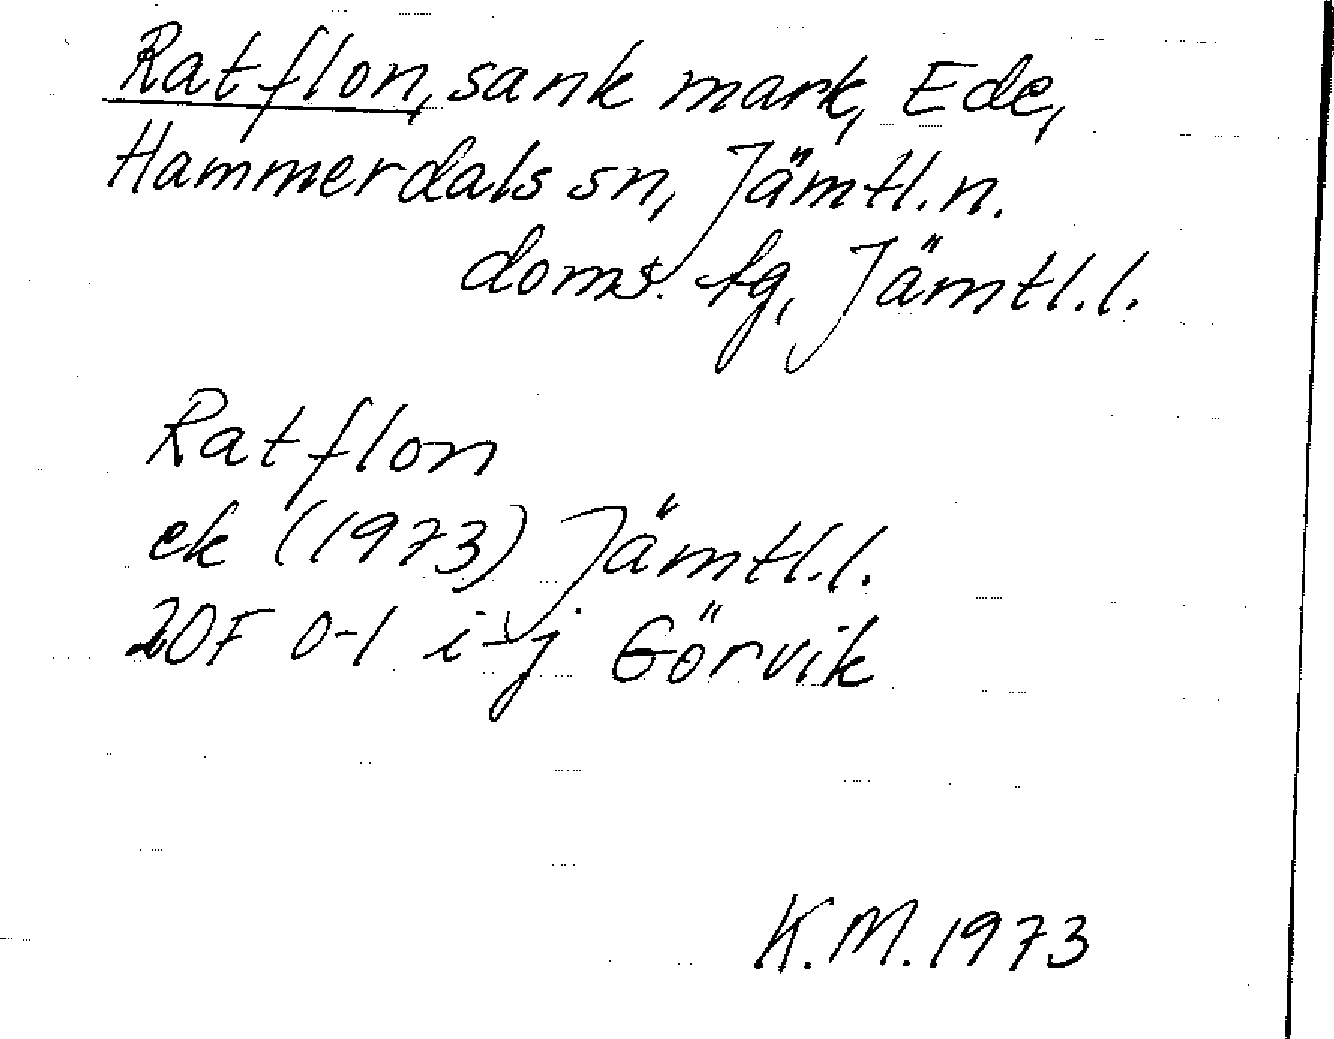 Ratflon, sank mark, Ede,
Hammerdals sn, Jämtl.n.
doms. fg, Jämtl.l.
Ratflon
ek (1973) Jämtl.l.
20F 0-1 i-j Görvik
K.M. 1973